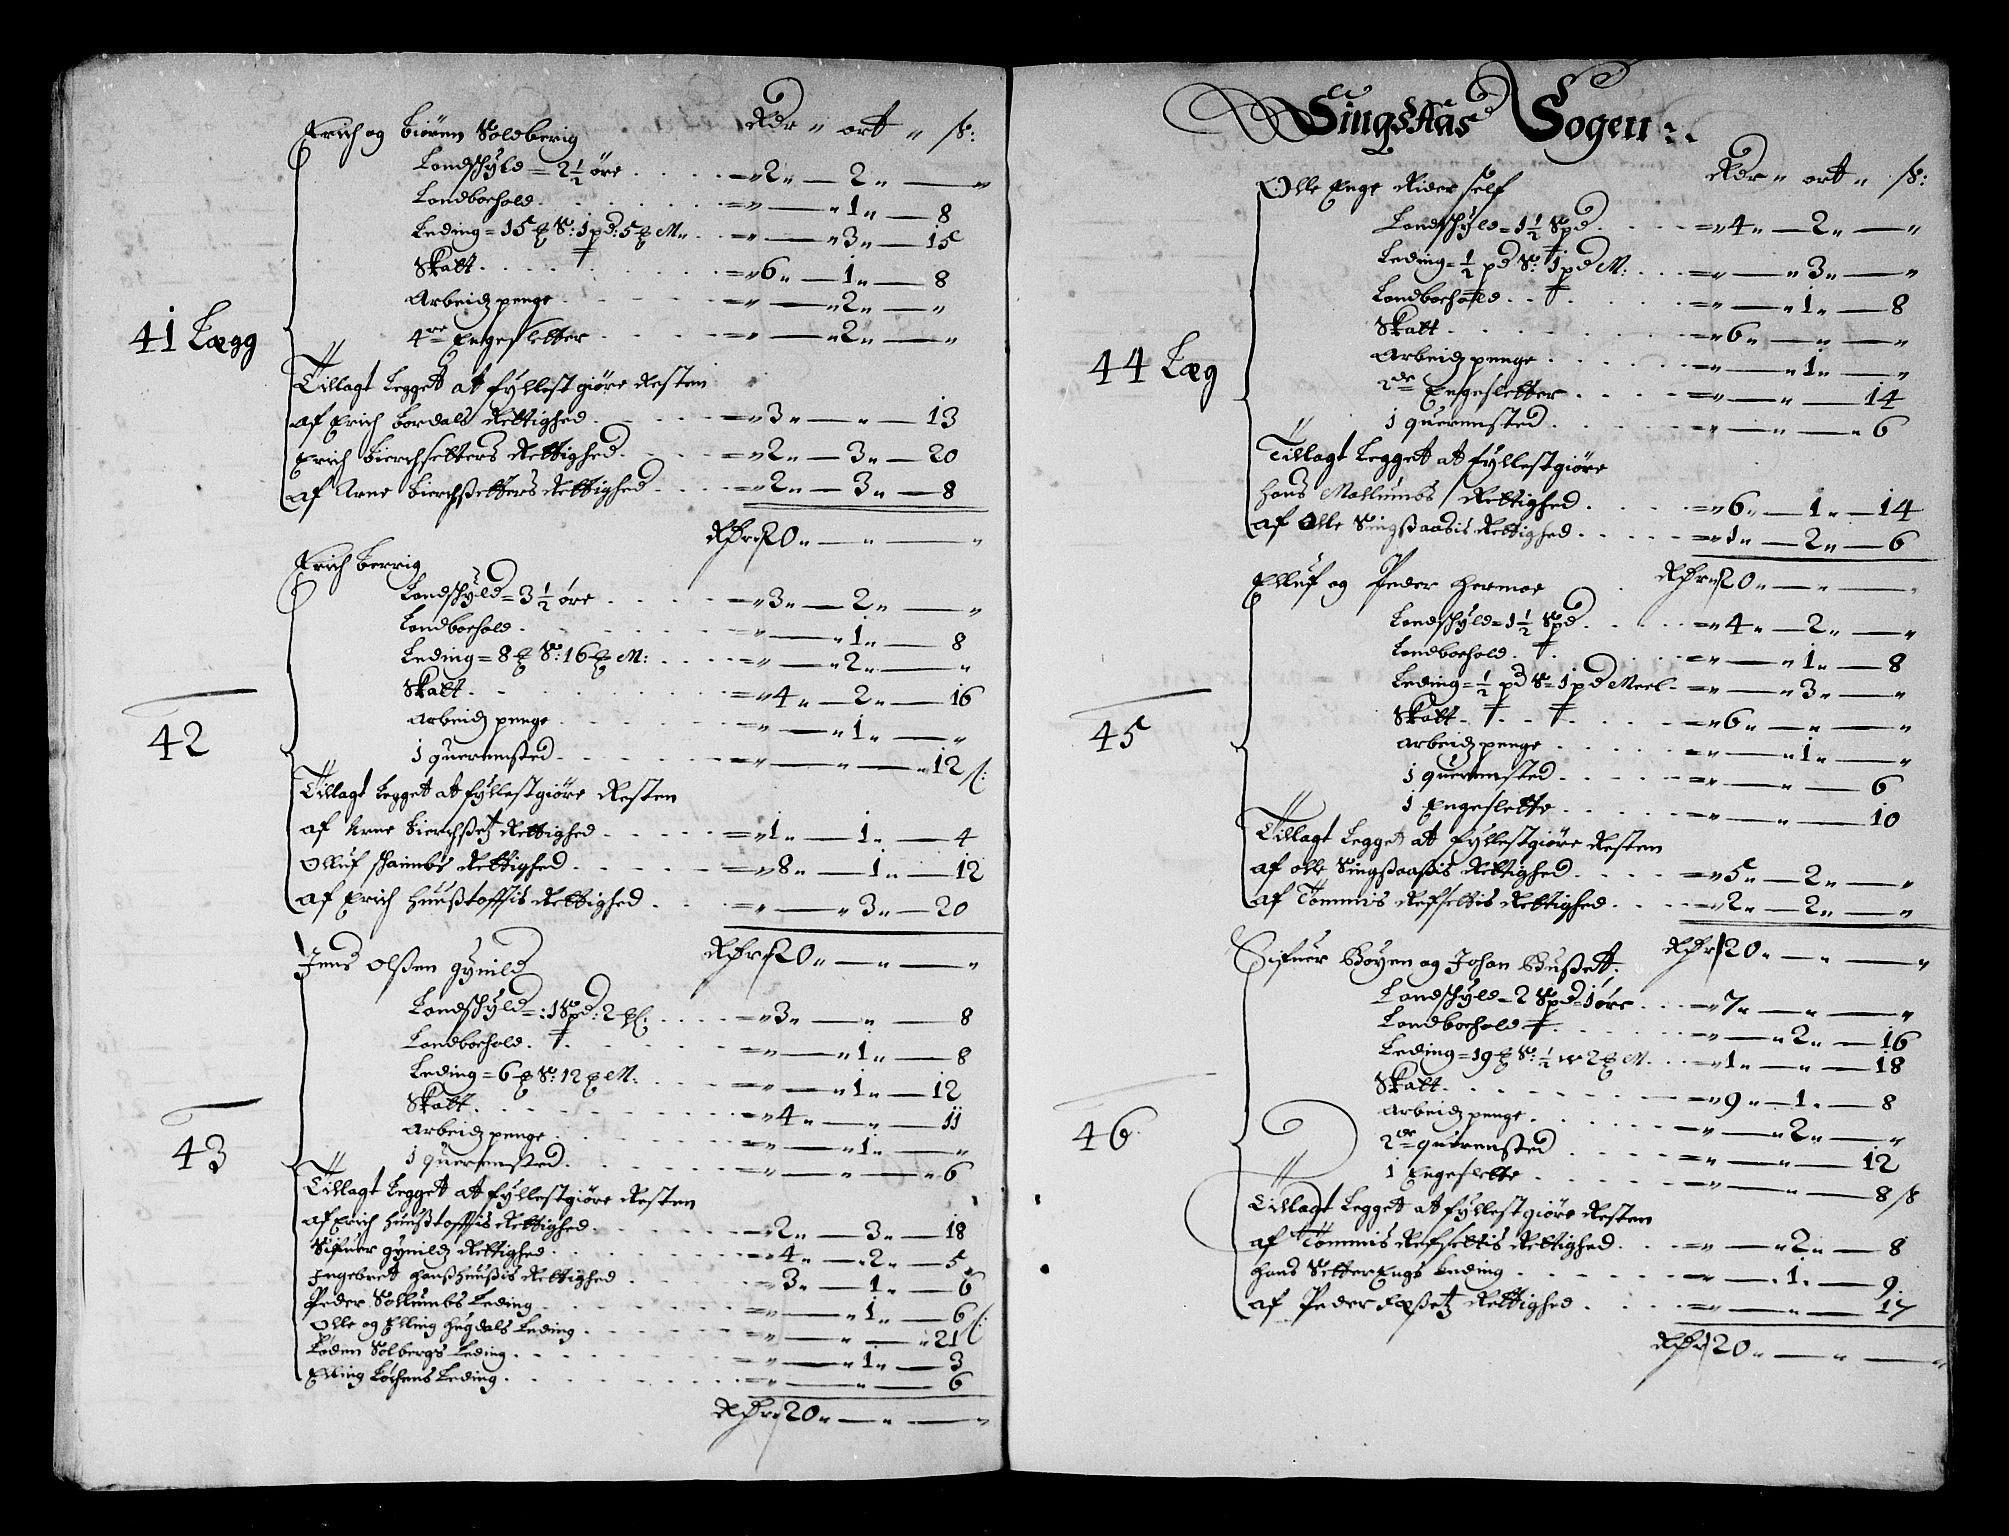 Rdr " ort " s:
Erich og Biørn Soldberig
Landschyld = 2 1/2 øre . . . . = " 2 " — 2 " — "
Landboehold . . . . = " — " 1 " — 8
Leding = 15 S: 1 pd: 5 M " . . = " — " 3 " — 15
Skatt . . . . = " 6 " — 1 " — 8
Arbeidz penge . . . . = " — " 2 " — "
4re Engesletter . . . . = " — " 2 " — "
41 Lægg
Tillagt Legget at fyllestgiøre Resten
af Erich Bordals Rettighed . . . = " 3 " — " — 13
Erich Bierchsetters Rettighed . . . = " 2 " — 3 " — 20
af Arne Bierchsetters Rettighed . . . = " 2 " — 3 " — 8
Rdr 20 " — " — "
Erich Berrig
Landschyld = 3 1/2 øre . . . . = " 3 " — 2 " — "
Landboehold . . . . = " — " 1 " — 8
Leding = 8 S: 16 M: . . . = " — " 2 " — "
Skatt . . . . = " 4 " — 2 " — 16
Arbeidz penge . . . . = " — " 1 " — "
1 quernsted . . . . = " — " — " 12 s:
42
Tillagt Legget at fyllestgiøre Resten
af Arne Bierchsetz Rettighed . . . = " 1 " — 1 " — 4
Olluf Rettighed . . . = " 8 " — 1 " — 12
af Erich Rettighed . . . = " — " 3 " — 20
Rdr 20 " — " — "
Jens Olßen gynild
Landschyld = : 1 Spd: 2 . . . = " 3 " — " — 8
Landboehold . . . . = " — " 1 " — 8
Leding = 6 S: 12 M: . . . = " — " 1 " — 12
Skatt . . . . = " 4 " — " — 11
Arbeidz penge . . . . = " — " 1 " — "
1 quernsted . . . . = " — " — " 6
43
Tillagt Legget at fyllestgiøre Resten
af Erich Rettighed . . . = " 2 " — 3 " — 18
Sifuer gynildz Rettighed . . . = " 4 " — 2 " — 5
Ingebret Rettighed . . . = " 3 " — 1 " — 6
Peder Sollumbs Leding . . . = " — " 1 " — 6 s:
Olle og Elling Hugdals Leding . . . = " — " — " 21
Loden Solbergs Leding . . . = " — " 1 " — 3
Elling Løchens Leding . . . = " — " — 6
Rdr 20 " — " — "
Singsaas Sogen
Rdr " ort " s:
Olle Enge Rider self
Landschyld = 1 1/2 Spd . . . = " 4 " — 2 " — "
Leding = 1/2 pd S: 1 pd M: . . . = " — " 3 " — "
Landboehold . . . . = " — " 1 " — 8
Skatt . . . . = " 6 " — " — "
Arbeidz penge . . . . = " — " 1 " — "
2de Engesletter . . . . = " — " — 14
1 quernsted . . . . = " — " — " 6
44 Læg
Tillagt Legget at fyllestgiøre
Hans Mollumbs Rettighed . . . = " 6 " — 1 " — 14
af Olle Singsaasis Rettighed . . . = " 1 " — 2 " — 6
Rdr 20 " — " — "
Elluf og Peder Hermoe
Landschyld = 1 1/2 Spd . . . = " 4 " — 2 " — "
Landboehold . . . . = " — " 1 " — 8
Leding = 1/2 pd S = 1 pd Meel = " — " 3 " — "
Skatt . . . . = " 6 " — " — "
Arbeidz penge . . . . = " — " 1 " — "
1 quernsted . . . . = " — " — 6
1 Engeslette . . . . = " — " — 10
45
Tillagt Legget at fyllestgiøre Resten
af Olle Singsaaßis Rettighed . . . = " 5 " — 2 " — "
af Tommis Refsettis Rettighed . . . = " 2 " — 2 " — "
Rdr 20 " — " — "
Sifuer Bøyen og Johan Bußett:
Landschyld = 2 Spd = 1 øre . . . = " 7 " — " — "
Landboehold . . . . = " — " 2 " — 16
Leding = 19 S: 1/2 w 2 M . . . = " 1 " — " — 18
Skatt . . . . = " 9 " — 1 " — 8
Arbeidz penge . . . . = " — " 2 " — "
2de quernsted . . . . = " — " — 12
1 Engeslette . . . . = " — " — 8 s
46
Tillagt Legget at fyllestgiøre Resten
af Tommis Refsettis Rettighed . . . = " — " 2 " — 8
Hans Setter Engs Leding . . . = " — " 1 " — 9
af Peder Rettighed . . . = " — " — 17
Rdr 20 " — " — "